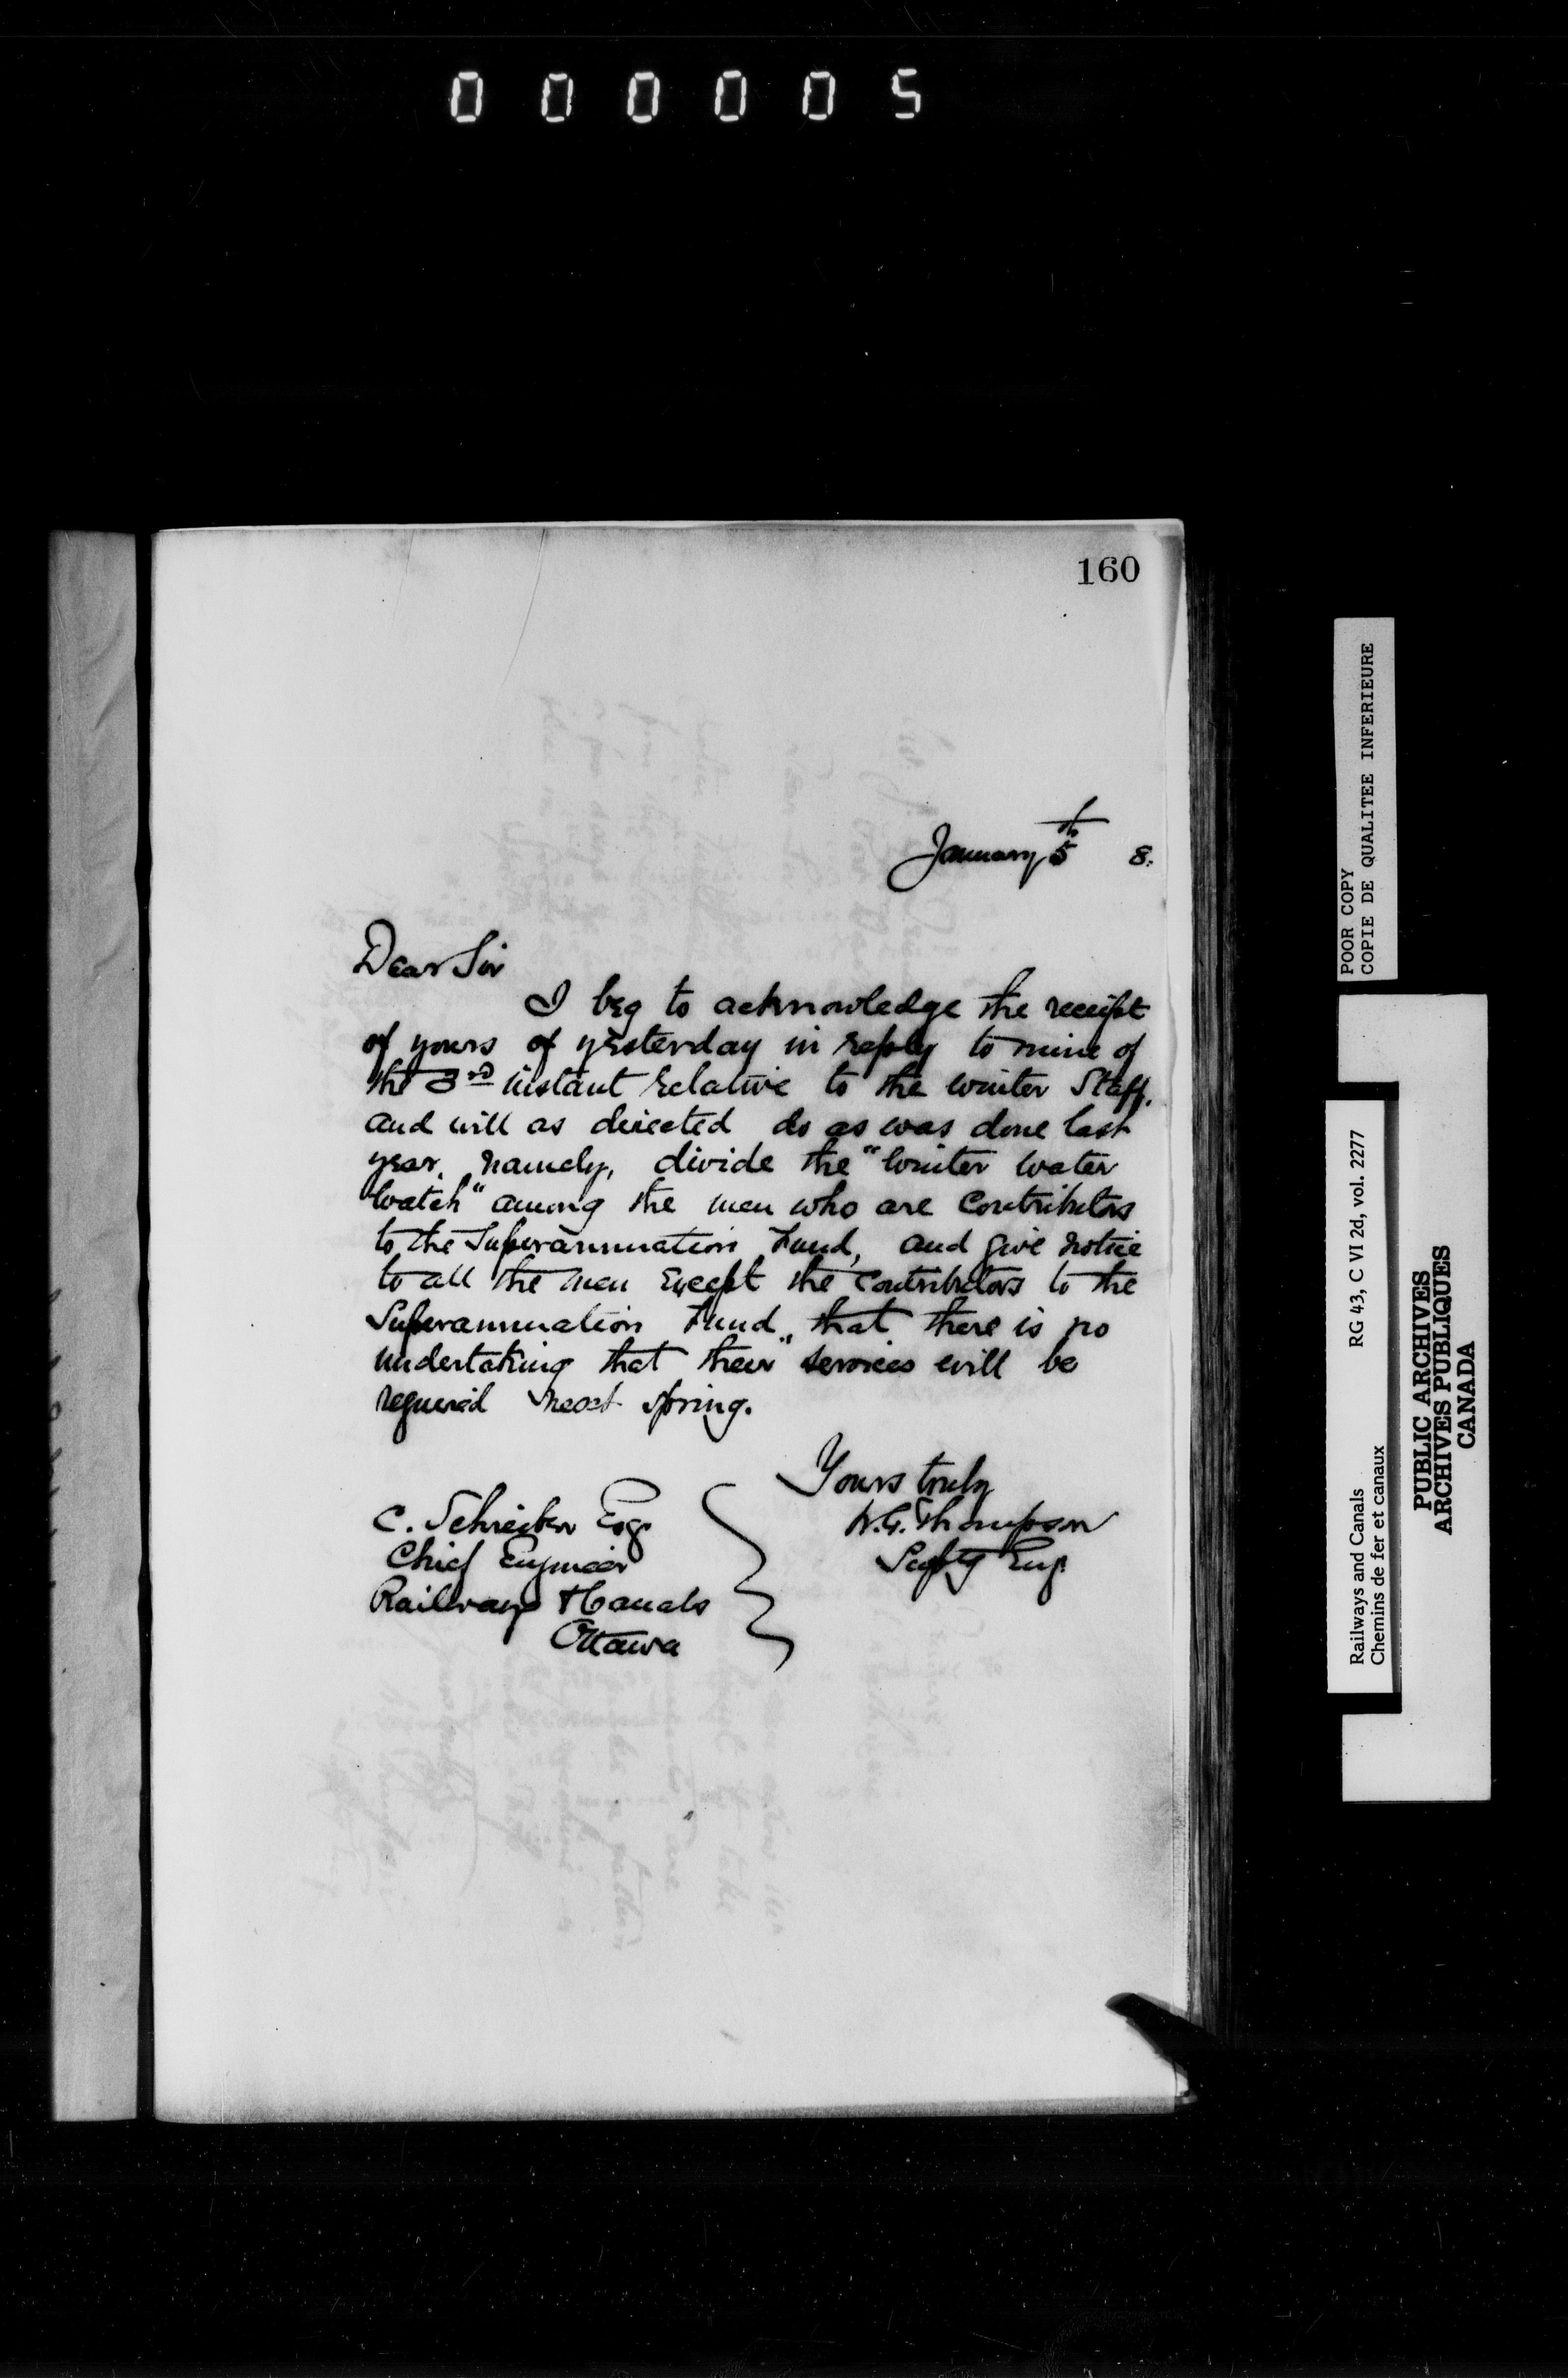 000005
160
January 5th 8.
Dear Sir
I beg to acknowledge the receipt
of yours of yesterday in reply to mine of
the 3rd instant relative to the winter Staff.
and will as directed do as was done last
year, namely, divide the "Winter Water
Watch" among the men who are Contributors
to the Superannuation Fund, and give notice
to all the men Except the Contributors to the
Superannuation Fund "that there is no
undertaking that their services will be
required next spring.
Yours truly
W.G. Thompson
Supt'g Eng.
C. Schreiber Esq
Chief Engineer
Railways & Canals
Ottawa
POOR COPY
COPIE DE QUALITEE INFERIEURE
Railways and Canals RG 43, C VI 2d, vol. 2277
Chemins de fer et canaux
PUBLIC ARCHIVES
ARCHIVES PUBLIQUES
CANADA